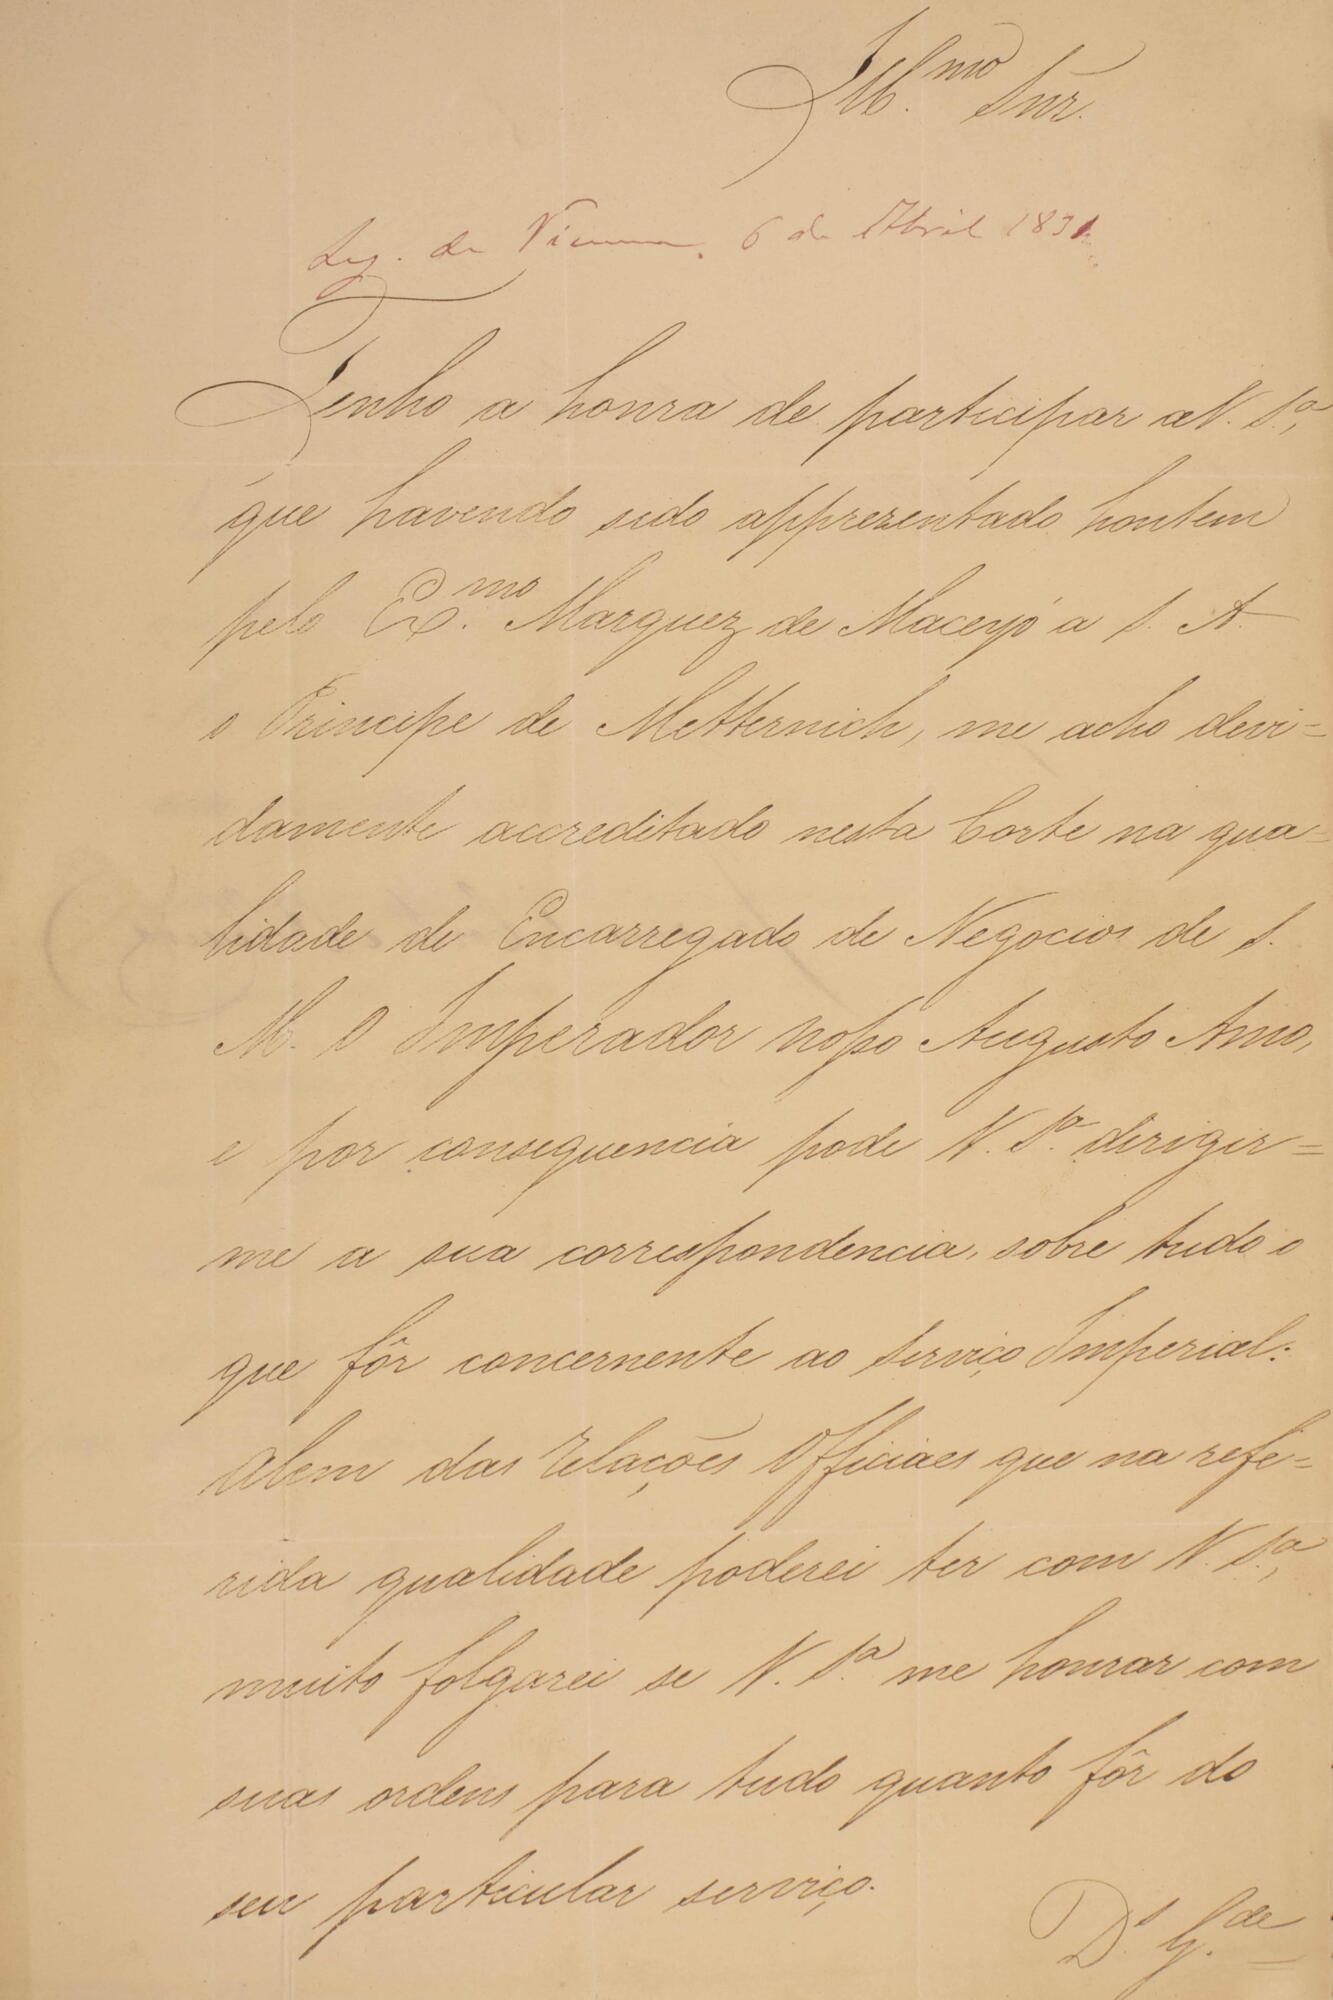 Ill.mo Snr.
Leg. de Vienna, 6 de Abril 1831
Tenho a honra de participar a V. S.a,
que havendo sido apprezentado hontem
pelo Ex.mo Marquez de Maceyó a S. A.
o Principe de Metternich, me acho devi=
damente accreditado nesta Corte na qua=
lidade de Encarregado de Negocios de S.
M. O Imperador Nosso Augusto Amo,
e por consequencia pode V. S.a dirigir=
me a sua correspondencia, sobre tudo o
que fôr concernente ao Serviço Imperial:
Alem das relações Officiaes que na refe=
rida qualidade poderei ter com V. S.a,
muito folgarei se V. S.a me honrar com
suas ordens para tudo quanto fôr do
seu particular serviço.
D.s G.de